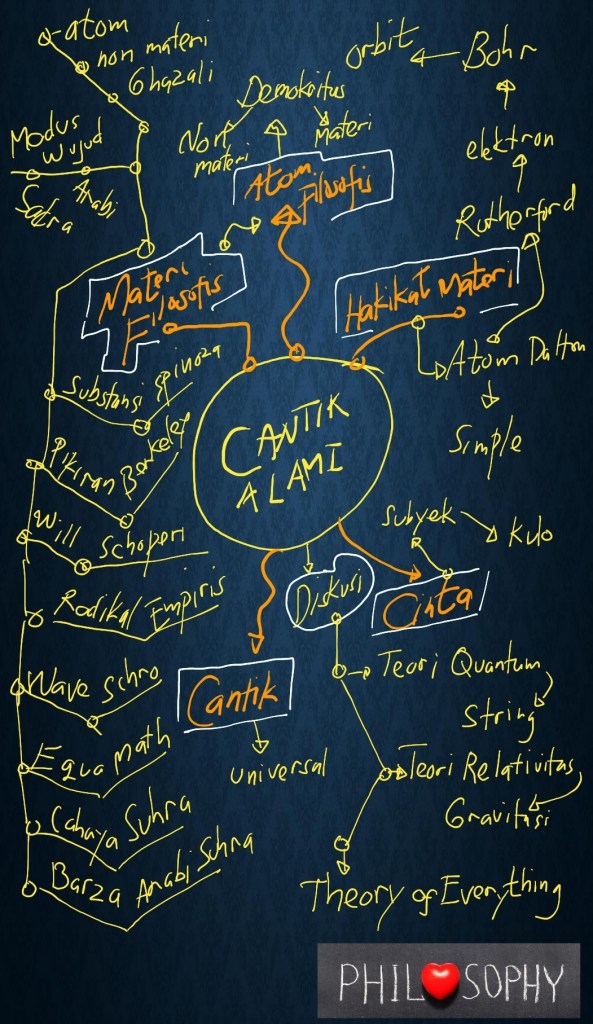 atom
non materi
Ghazali
Modus
wujud
Arabi
Sadra
Orbit
Bohr
elektron
Rutherford
Demokritus
Non
materi
Materi
Atom
Filosofis
Materi
Filosofis
Hakikat Materi
Atom Dalton
Simple
CANTIK
ALAMI
Substansi Spinoza
Pikiran Berkeley
Will
Schoperi
Radikal Empiris
Wave Schro
Equa math
Cahaya Suhra
Barza Arabi Suhra
Subyek
Kulo
Cinta
Diskusi
Cantik
universal
Teori Quantum
String
Teori Relativitas
Gravitasi
Theory of Everything
PHILOSOPHY